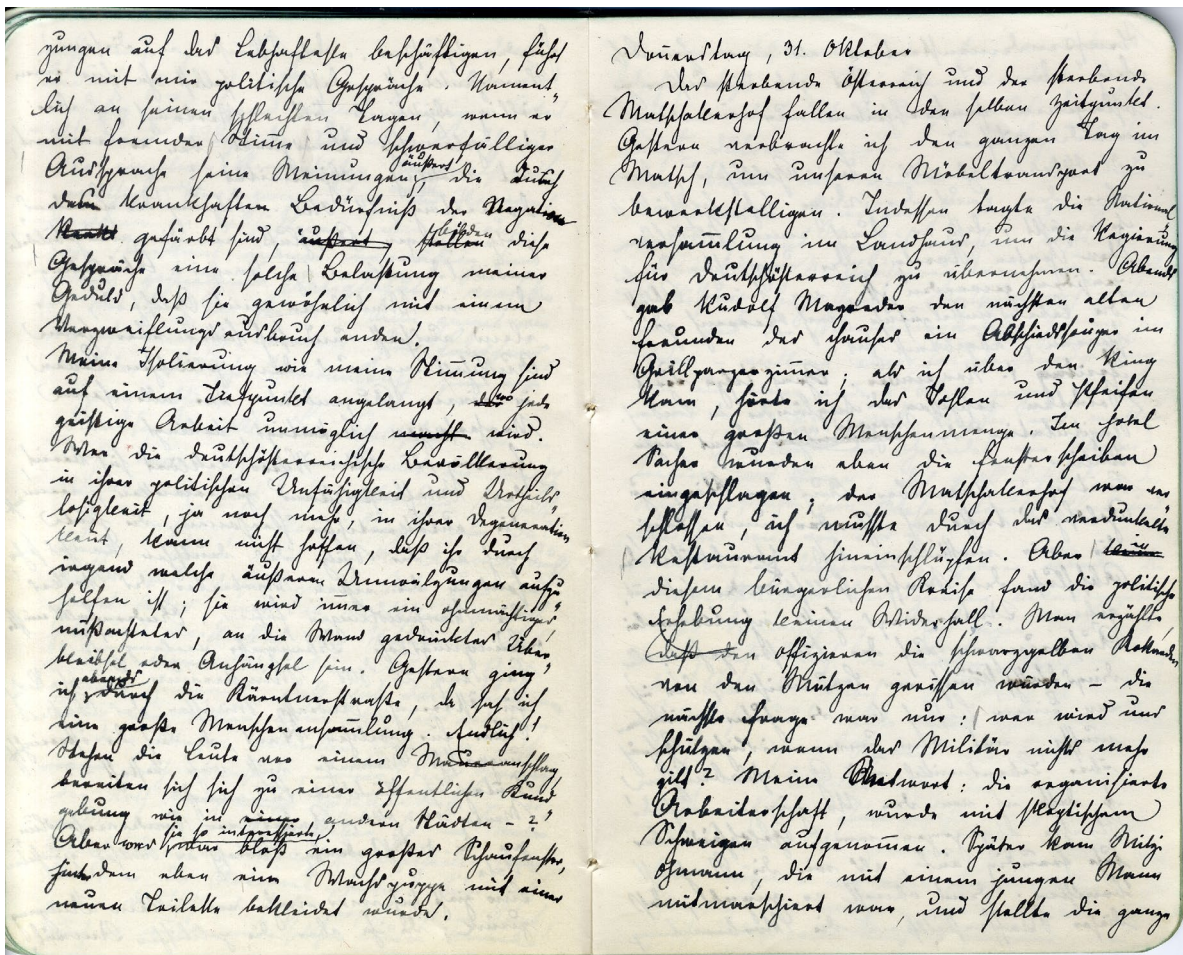 zungen auf das Lebhafteste beschäftigen, führt
er mit mir politische Gespräche. Nament-
lich an seinen schlechten Tagen, wenn er
mit fremder Stimme und schwerfälliger
Aussprache seine Meinungen äußert, die durch
dem krankhaften Bedürfniß der Negation
gefärbt sind, äußert bilden stellen diese
Gespräche eine solche Belastung meiner
Geduld, daß sie gewöhnlich mit einem
Verzweiflungsausbruch enden.
Meine Isolierung wie meine Stimmung sind
auf einem Tiefpunkt angelangt, wo jede
geistige Arbeit unmöglich macht wird.
Wer die deutschösterreichische Bevölkerung
in ihrer politischen Unfähigkeit und Urtheils-
losigkeit, ja noch mehr, in ihrer Degeneration
kennt, kann nicht hoffen, daß ihr durch
irgend welche äußeren Umwälzungen aufzu-
helfen ist; sie wird immer ein ohnmächtiger,
mißachteter, an die Wand gedrückter Über-
bleibsel oder Anhängsel sein. Gestern ging
ich abends durch die Kärntnerstraße, da sah ich
eine große Menschenansammlung. Endlich!
Stehen die Leute vor einem Maueranschlag,
bereiten sich sich zu einer öffentlichen Kund-
gebung wie in einer andern Städten – ?
Aber was sie so interessierte, war bloß ein großer Schaufenster,
in dem eben eine Wachspuppe mit einer
neuen Toilette bekleidet wurde.
Donnerstag, 31. Oktober
Das sterbende Österreich und der sterbende
Matschakerhof fallen in den selben Zeitpunkt.
Gestern verbrachte ich den ganzen Tag im
Matsch, um unseren Möbeltransport zu
bewerkstelligen. Indessen tagte die National-
versammlung im Landhaus, um die Regierung
für Deutschösterreich zu übernehmen. Abends
gab Rudolf Mayreder den nächsten alten
Freunden des Hauses ein Abschiedssouper im
Grillparzerzimmer; als ich über den Ring
kam, hörte ich das Johlen und Pfeifen
einer großen Menschenmenge. Im Hotel
Sacher wurden eben die Fensterscheiben
eingeschlagen; der Matschakerhof war ver-
schlossen, ich musste durch das verdunkelte
Restaurant hineinschlüpfen. Aber in
diesem bürgerlichen Kreise fand die politische
Erhebung keinen Widerhall. Man erzählte,
daß den Offizieren die schwarzgelben Kokarden
von den Mützen gerissen wurden – die
nächste Frage war nur: wer wird uns
schützen, wenn das Militär nichts mehr
gilt? Meine Antwort: die organisierte
Arbeiterschaft, wurde mit skeptischem
Schweigen aufgenommen. Später kam Mitzi
Ohmann, die mit einem jungen Mann
mitmarschiert war, und stellte die ganze